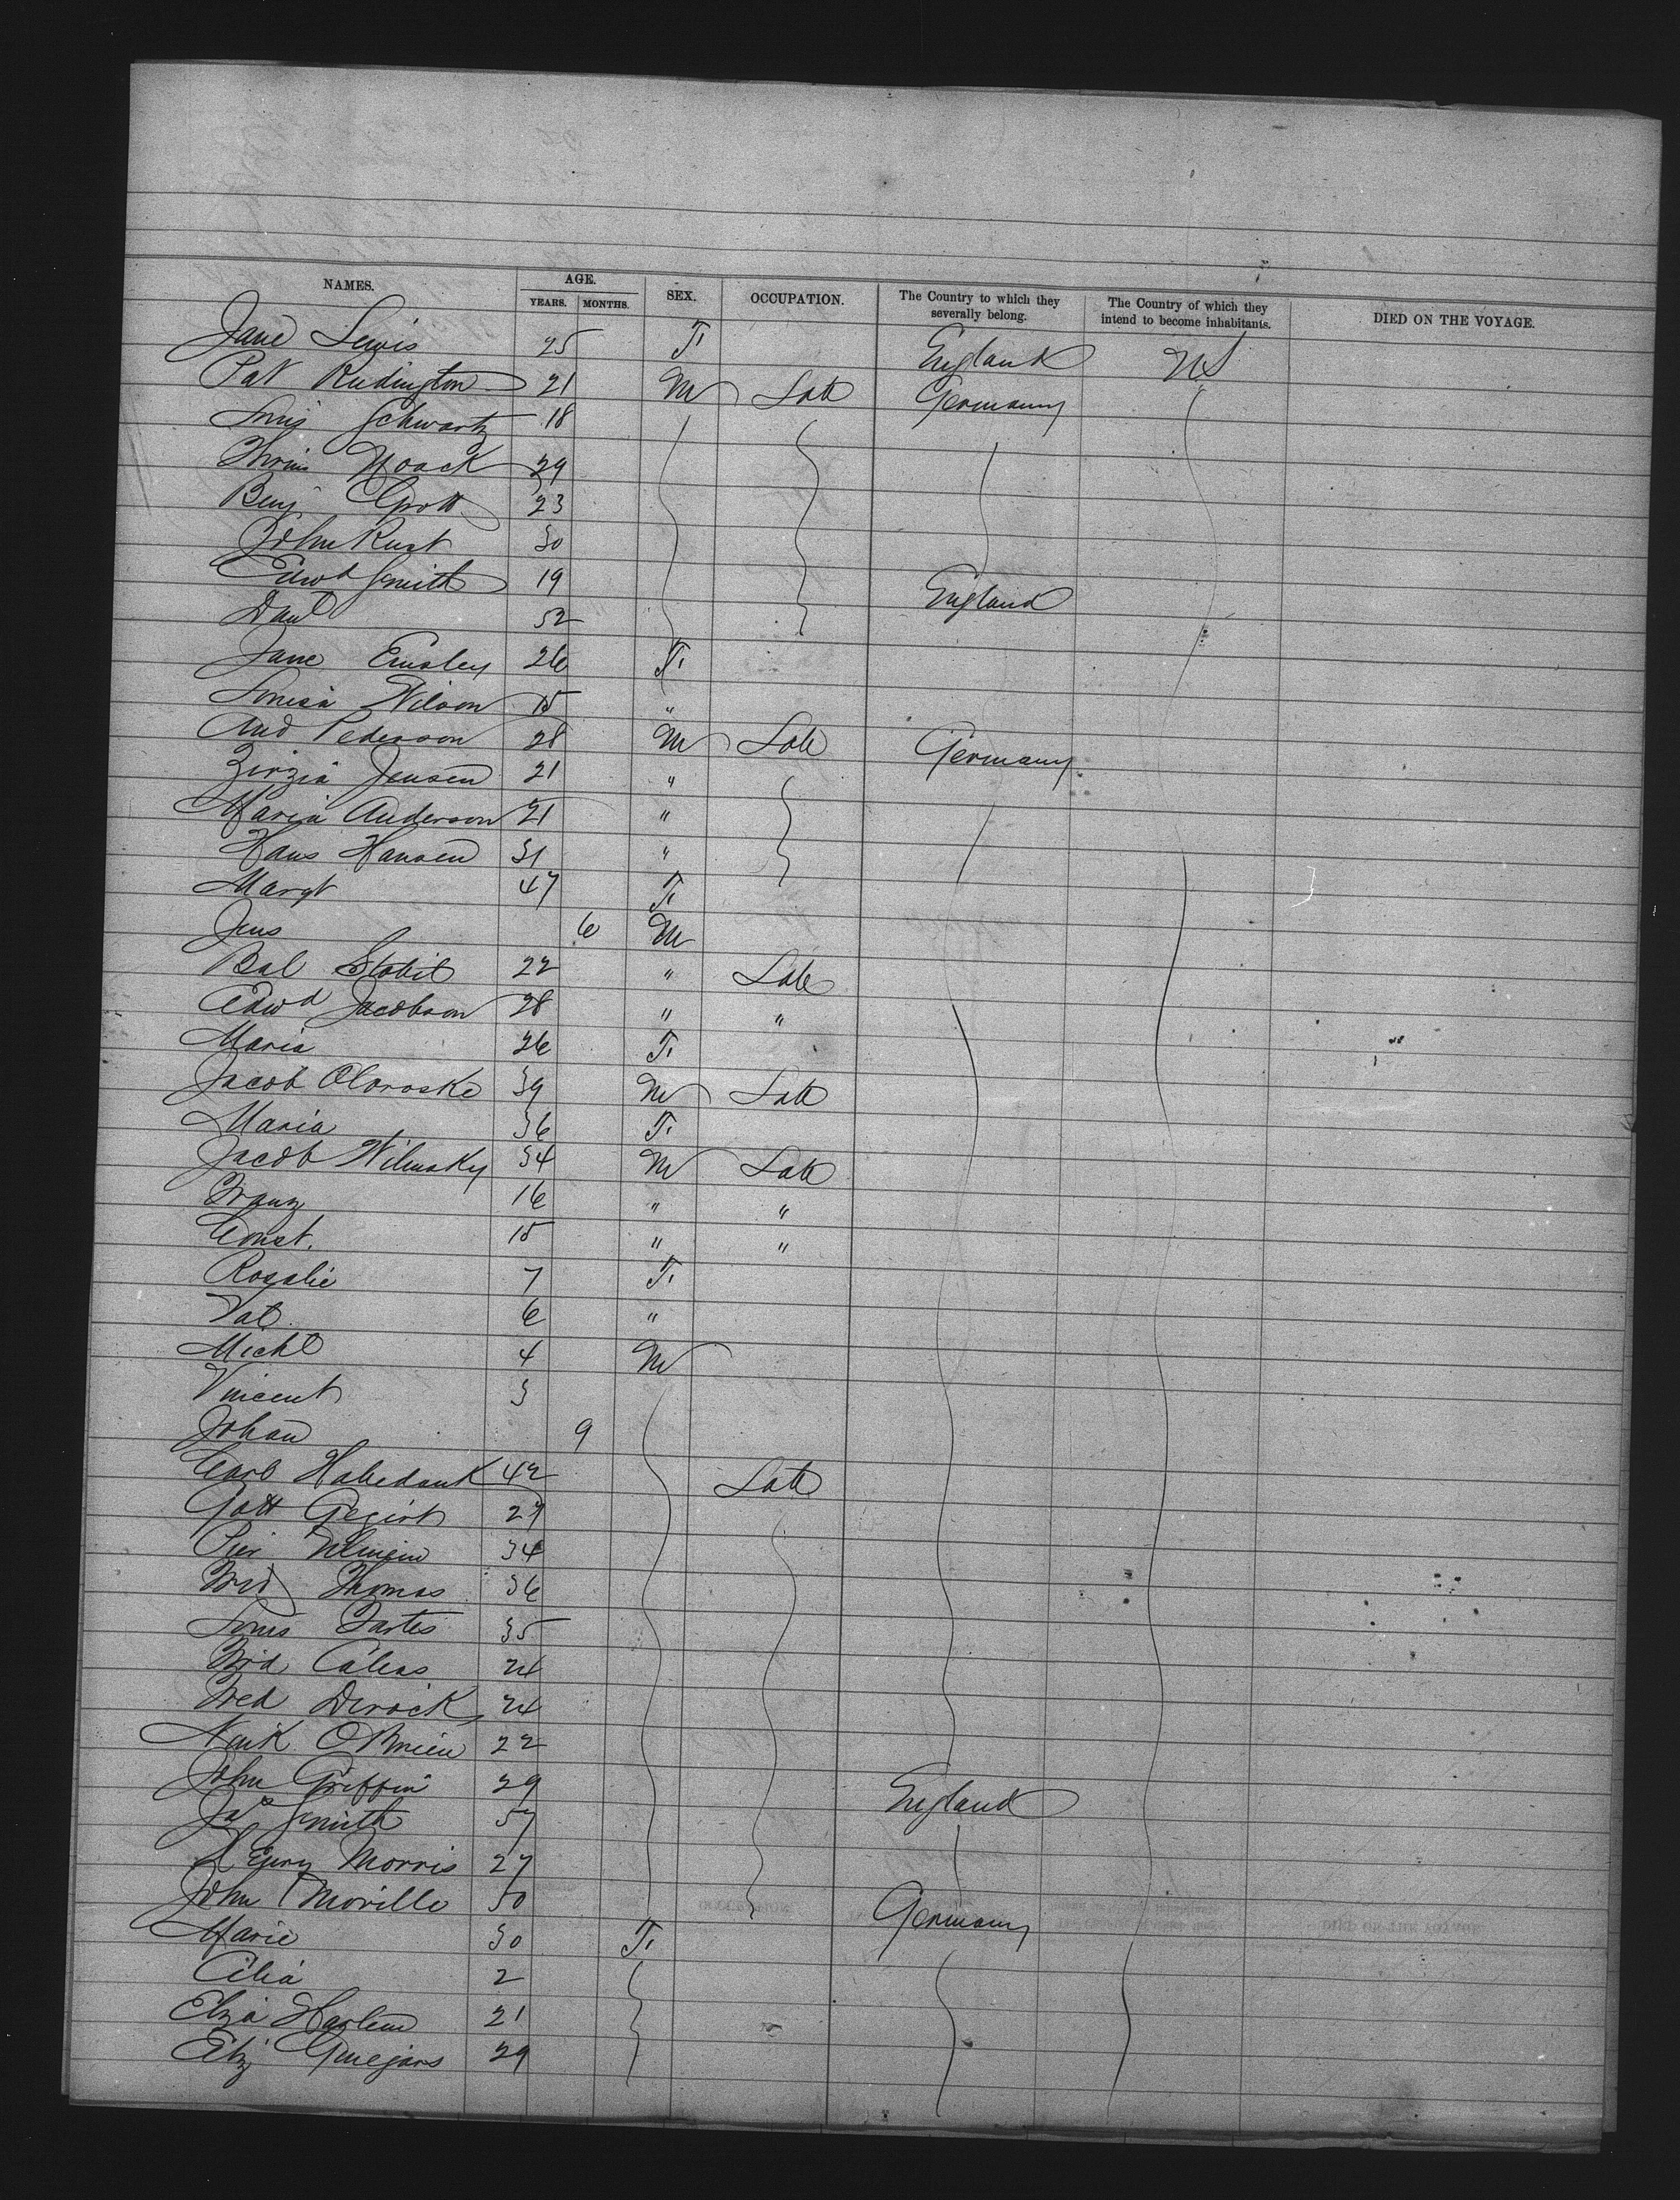 NAMES. AGE. YEARS. MONTHS. SEX. OCCUPATION. The Country to which they severally belong. The Country of which they intend to become inhabitants. DIED ON THE VOYAGE.
Jane Lewis 25 F. England US
Pat Rudington 21 M Lab Germany
Louis Schwartz 18
Noack 29
Benj Grott 23
John Rust 30
Edwd Smith 19 England
Danl 52
Jane Emsley 26 F.
Louisa Wilson 15 "
And Pederson 28 M Lab Germany
Jensen 21 "
Maria Anderson 21 "
Hans Hansen 31 "
Margt 47 F.
Jens 6 M
Bal 22 " Lab
Edwd Jacobson 28 " "
Maria 26 F.
Jacob 39 M Lab
Maria 36 F.
Jacob Wilmsky 34 M Lab
Franz 16 " "
Const. 15 " "
Rosalie 7 F.
Val. 6 "
Michl 4 M
Vincent 3
Johan 9
Carl Habedank 42 Lab
Gott 27
34
Fred Thomas 36
Louis 35
Frd 24
Fred Derrick 24
O'Brien 22
John Griffin 29 England
Jas Smith 57
Henry Morris 27
John Moville 30 Germany
Marie 30 F.
Celia 2
Eliza Harlem 21
Eliz 29